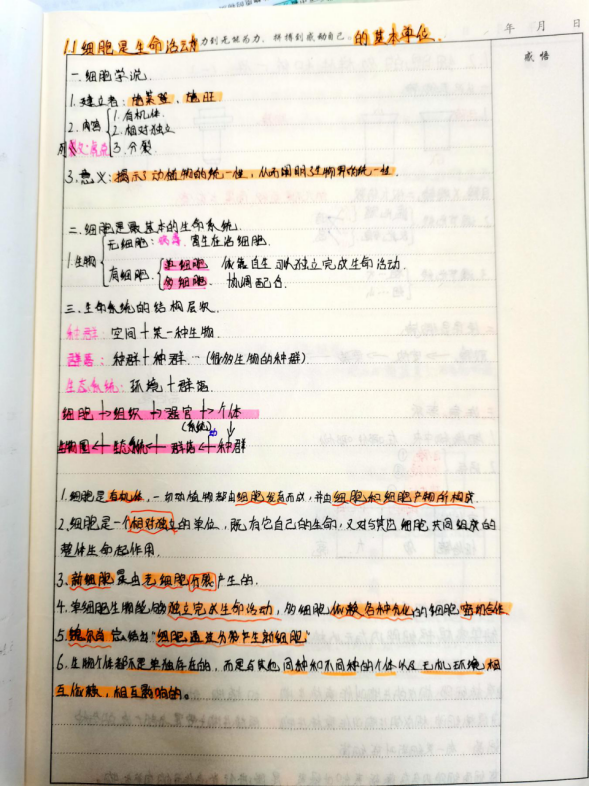 1.1细胞是生命活动 力到无能为力,拼搏到感动自己。 的基本单位.
年 月 日
感悟
一.细胞学说.
1.建立者: 施莱登、施旺
2.内容 1.有机体.
2.相对独立
3.分裂.
3.意义: 揭示了动植物的统一性,从而阐明生物界的统一性.
二.细胞是最基本的生命系统.
1.生物 无细胞: 病毒. 寄生在活细胞.
有细胞. 单细胞 依靠自生 可以独立完成生命活动.
多细胞. 协调配合.
三.生命系统的结构层次.
种群: 空间+某一种生物.
群落: 种群+种群…(很多生物的种群)
生态系统: 环境+群落
细胞→组织→器官→个体
(系统)
生物圈←生态系统←群落←种群
1.细胞是有机体,一切动植物都由细胞发育而成,并由细胞和细胞产物所构成.
2.细胞是一个相对独立的单位,既有它自己的生命,又对与其它细胞共同组成的
整体生命起作用.
3.新细胞是由老细胞分裂产生的.
4.单细胞生物能够独立完成生命活动,多细胞依赖各种分化的细胞密切合作.
5.魏尔肖总结出“细胞通过分裂产生新细胞”
6.生物个体都不是单独存在的,而是与其他同种和不同种的个体以及无机环境相
互依赖,相互影响的。